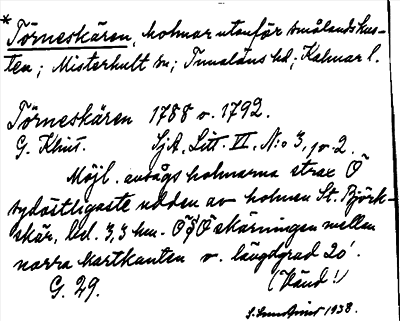 * Törneskären, holmar utanför smålandskus-
ten; Misterhult sn; Tunaläns hd; Kalmar l.
Törneskären 1788 o. 1792.
G. Klint. Sj.A. Litt. VI, N:o 3, 1 o. 2.
Möjl. avsågs holmarna strax Ö
sydöstligaste udden av holmen St. Björk-
skär, bel. 3,3 km. ÖSÖ skärningen mellan
norra kartkanten o. längdgrad 20'.
G. 29. (Vänd!)
1938.